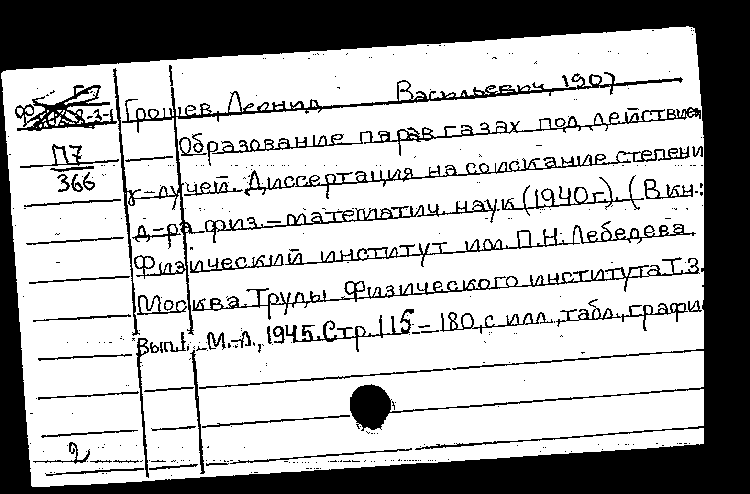 Грошев, Леонид Васильевич, 1907
П7
366
Образование пар в газах под действием
γ-лучей. Диссертация на соискание степени
д-ра физ.-математич. наук (1940 г.). (В кн.:
Физический институт им. П.Н. Лебедева.
Москва. Труды Физического института Т.3.
Вып.1. М.-Л., 1945. Стр. 115-180, с илл., табл., графи
2